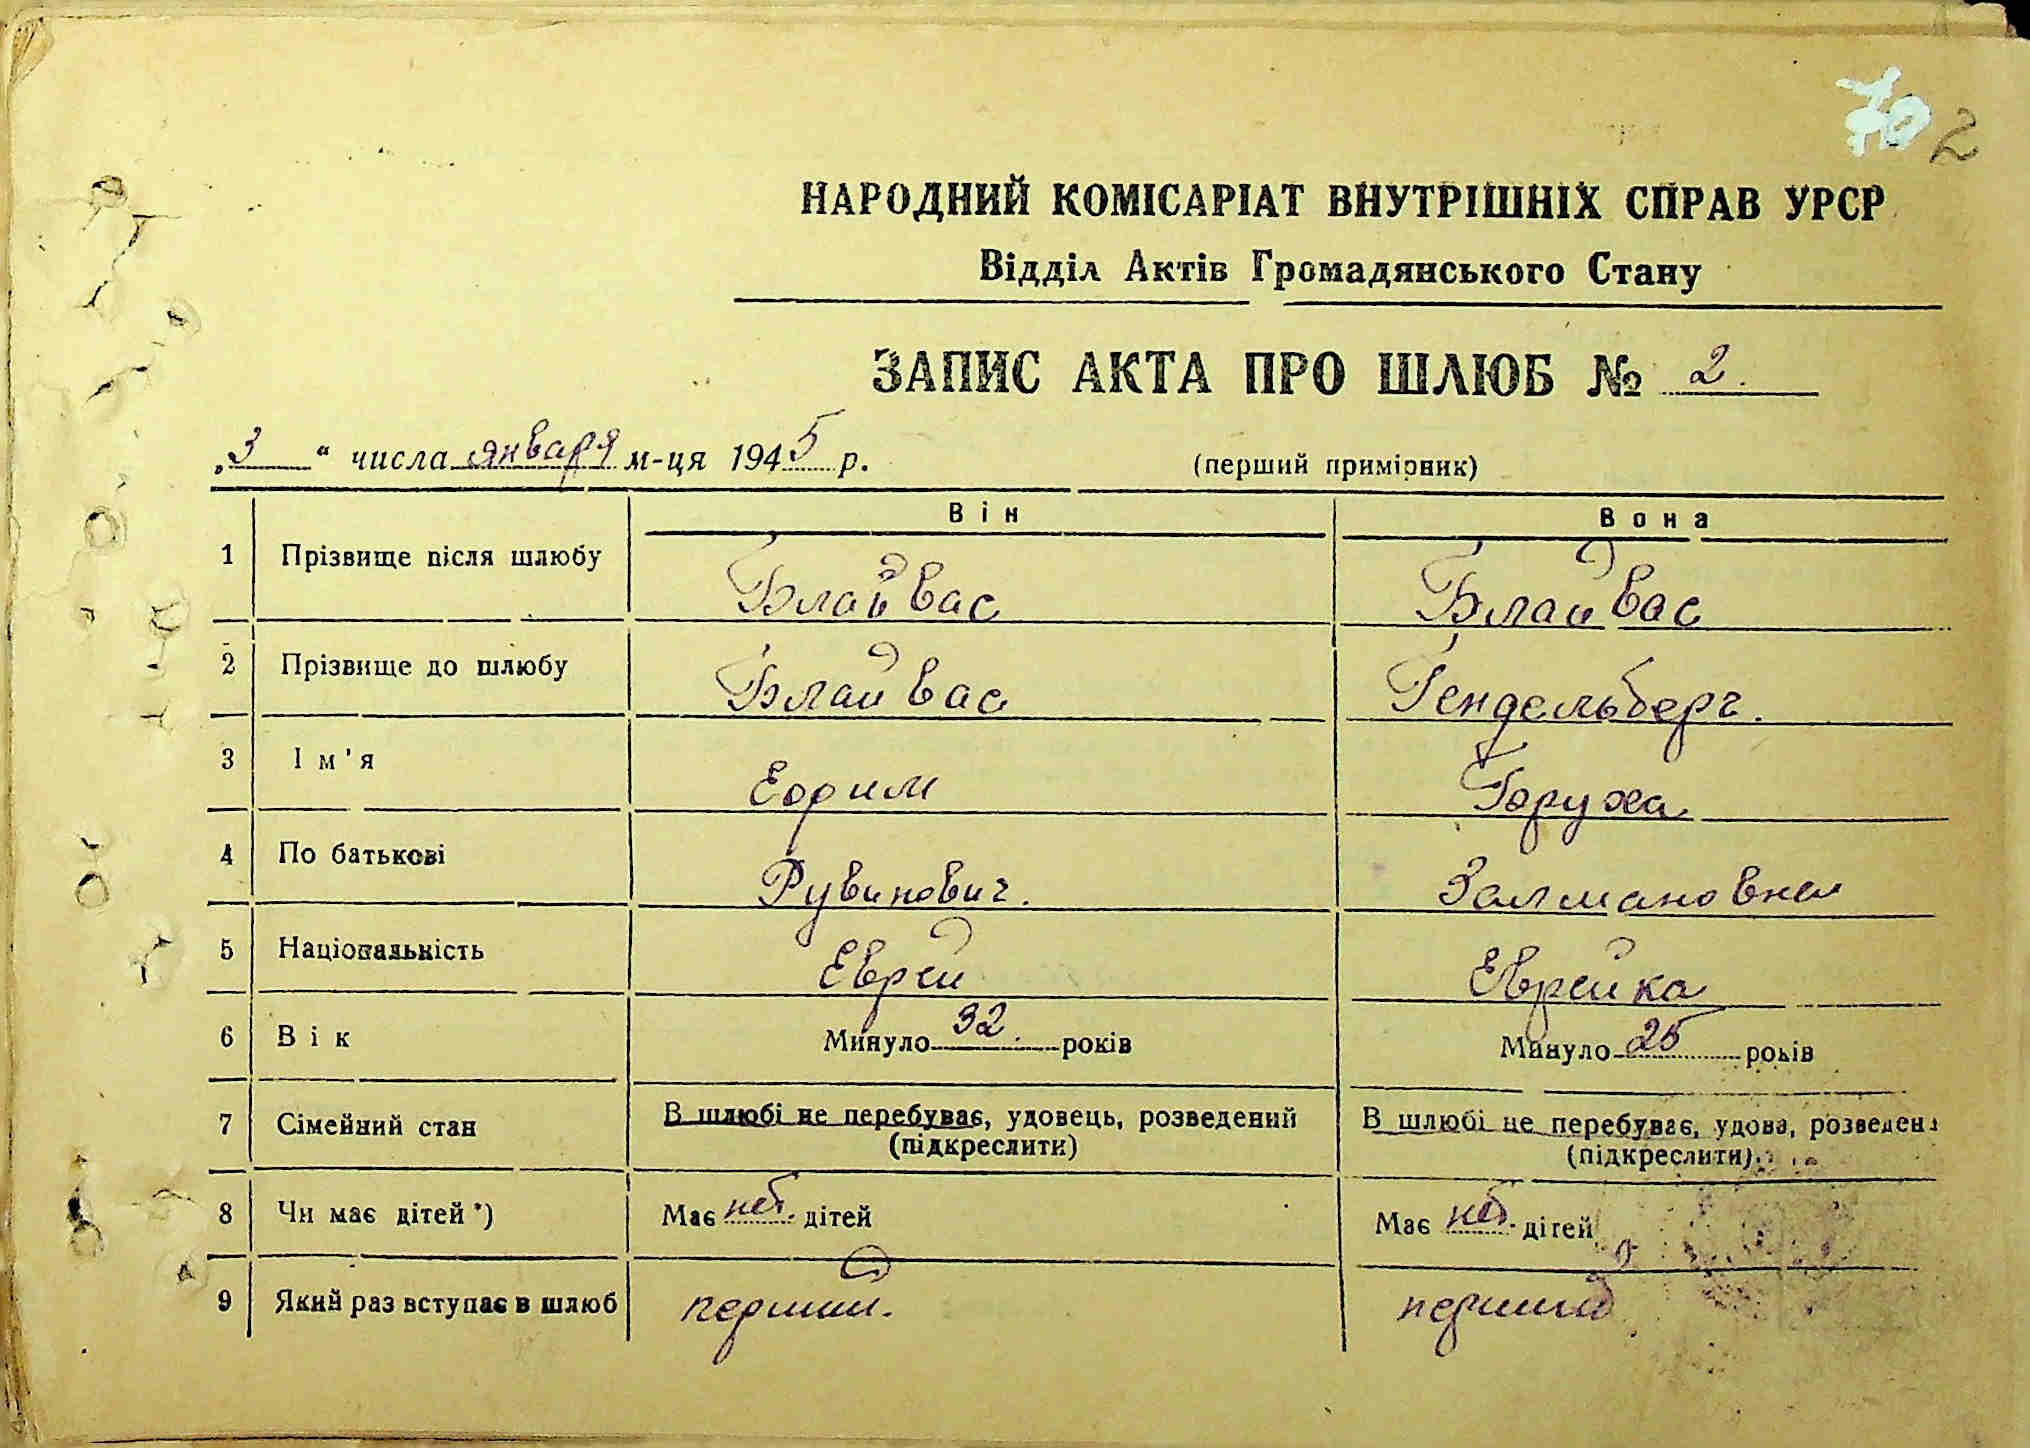 70 2
НАРОДНИЙ КОМІСАРІАТ ВНУТРІШНІХ СПРАВ УРСР
Відділ Актів Громадянського Стану
ЗАПИС АКТА ПРО ШЛЮБ № 2.
„3“ числа января м-ця 1945 р. (перший примірник)
Він Вона
1 Прізвище після шлюбу Блайвас Блайвас
2 Прізвище до шлюбу Блайвас Гендельберг.
3 Ім'я Ефим Боруха
4 По батькові Рувинович. Залмановна
5 Національність Еврей Еврейка
6 Вік Минуло 32. років Минуло 25 років
7 Сімейний стан В шлюбі не перебуває, удовець, розведений В шлюбі не перебуває, удова, розведена
(підкреслити) (підкреслити)
8 Чи має дітей*) Має нет. дітей Має нет. дітей
9 Який раз вступає в шлюб первый. первый